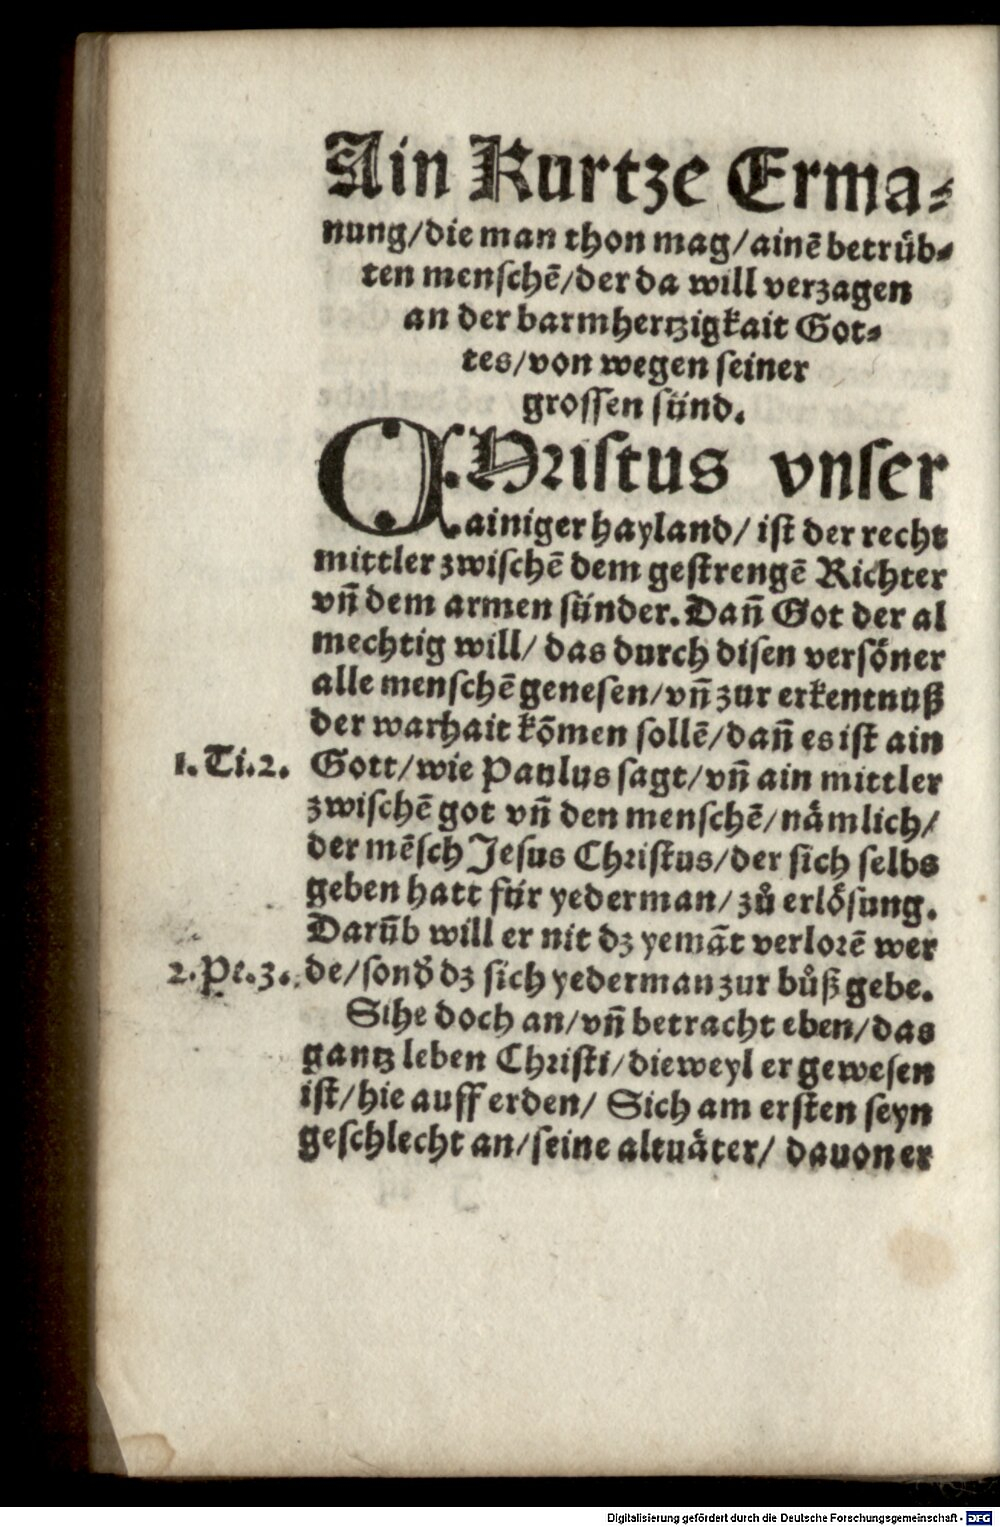 Ain Kurtze Erma⸗
nung/die man thon mag/ainē betruͤb⸗
ten menschē/der da will verzagen
an der barmhertzigkait Got⸗
tes/von wegen seiner
grossen sünd.
CHristus vnser
ainiger hayland/ ist der recht
mittler zwischē dem gestrengē Richter
vñ dem armen sünder. Dañ Got der al
mechtig will/ das durch disen versöner
alle menschē genesen/vñ zur erkentnuß
der warhait kōmen sollē/dañ es ist ain
1. Ti. 2. Gott/wie Paulus sagt/vñ ain mittler
zwischē got vñ den menschē/nämlich/
der mēsch Jesus Christus/der sich selbs
geben hatt für yederman/zů erlösung.
Darūb will er nit dz yemāt verlorē wer
2. Pe. 3. de/sonđ dz sich yederman zur bůß gebe.
Sihe doch an/vñ betracht eben/das
gantz leben Christi/dieweyl er gewesen
ist/hie auff erden/ Sich am ersten seyn
geschlecht an/seine altuäter/ dauon er
Digitalisierung gefördert durch die Deutsche Forschungsgemeinschaft - DFG